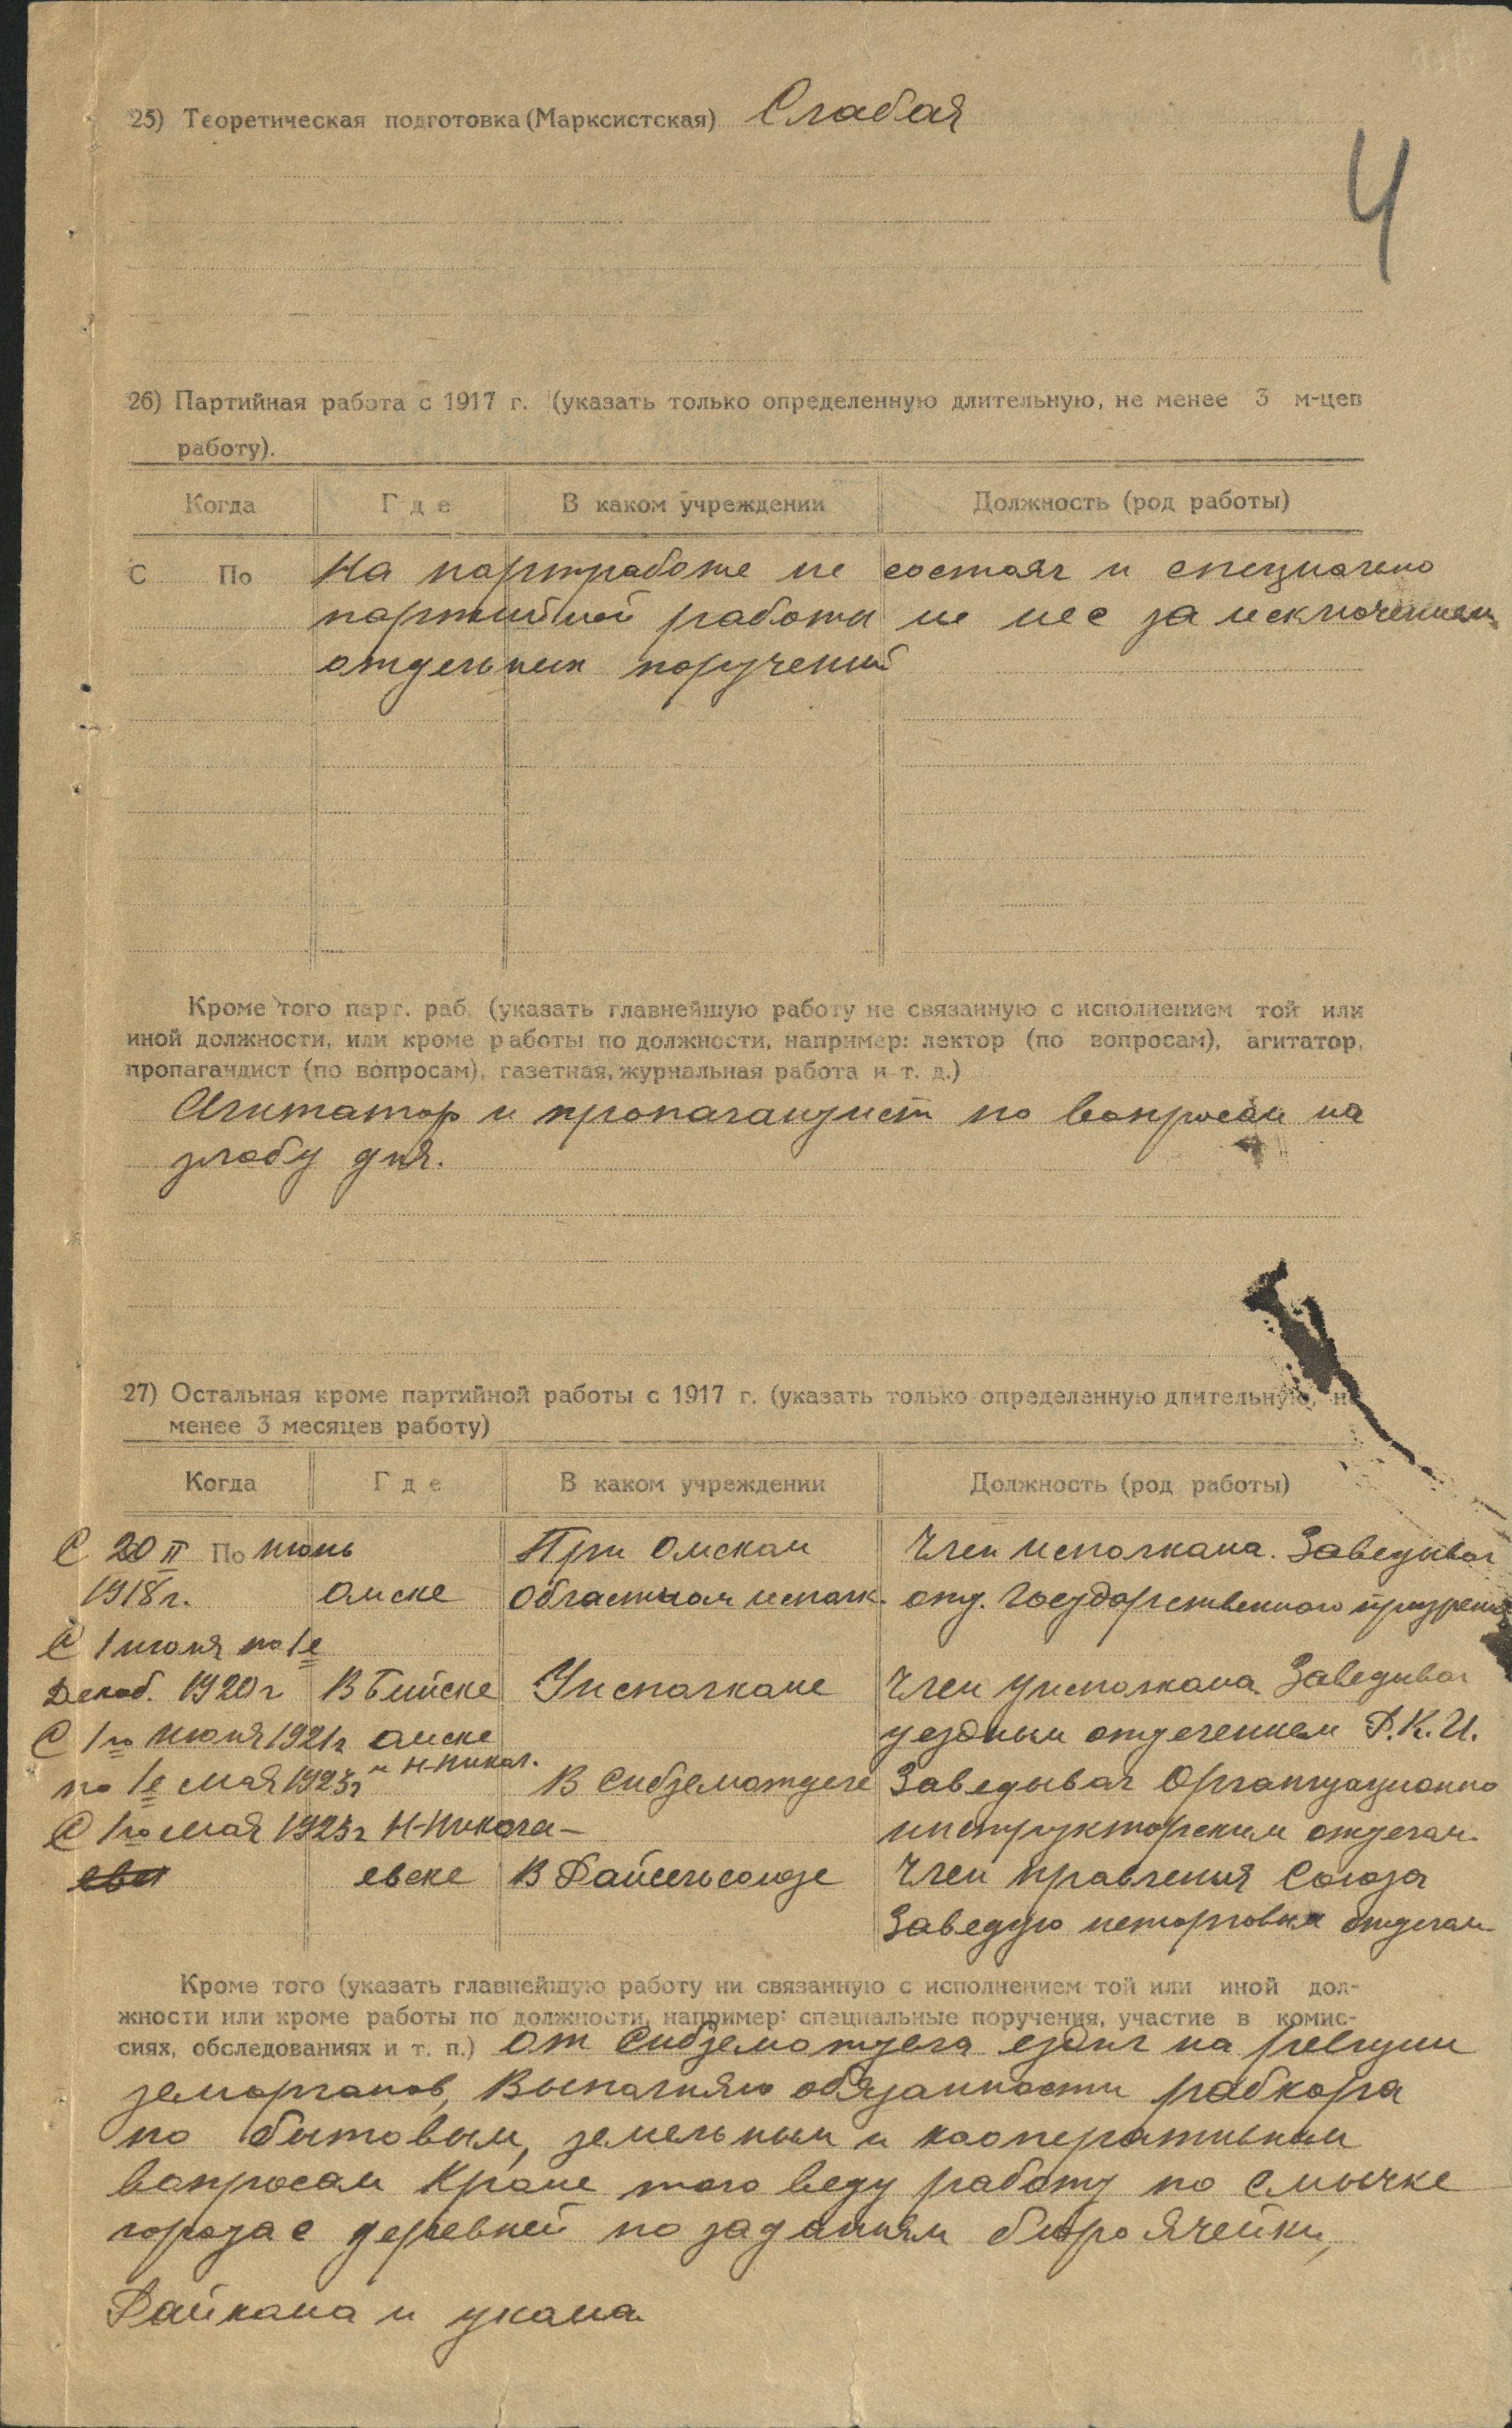 25) Теоретическая подготовка (Марксистская) Слабая
4
26) Партийная работа с 1917 г. (указать только определенную длительную, не менее 3 м-цев
работу).
Когда Где В каком учреждении Должность (род работы)
С По На партработе не состоял и специально
партийной работы не нес за исключением
отдельных поручений
Кроме того парт. раб. (указать главнейшую работу не связанную с исполнением той или
иной должности, или кроме работы по должности, например: лектор (по вопросам), агитатор,
пропагандист (по вопросам), газетная, журнальная работа и т. д.)
Агитатор и пропагандист по вопросам на
злобу дня.
27) Остальная кроме партийной работы с 1917 г. (указать только определенную длительную, не
менее 3 месяцев работу)
Когда Где В каком учреждении Должность (род работы)
С 20 II По июнь При Омском Член исполкома. Заведывал
1918 г. Омске Областном исполк. отд. Государственного призрения
С 1 июля по 1е
Декаб. 1920 г В Бийске Уисполкоме Член уисполкома Заведывал
С 1го июня 1921 г Омске уездным отделением Р.К.И.
и Н-Никол.
по 1е мая 1923 г В Сибземотделе Заведывал Организационно
С 1го мая 1923 г Н-Никола- инструкторским отделом.
евске В Райсельсоюзе Член правления Союза
Заведую неторговым отделом
Кроме того (указать главнейшую работу ни связанную с исполнением той или иной дол-
жности или кроме работы по должности, например: специальные поручения, участие в комис-
сиях, обследованиях и т. п.) От Сибземотдела ездил на ревизии
земорганов, Выполняю обязанности рабкора
по бытовым, земельным и кооперативным
вопросам Кроме того веду работу по смычке
города с деревней по заданиям бюро Ячейки,
Райкома и укома